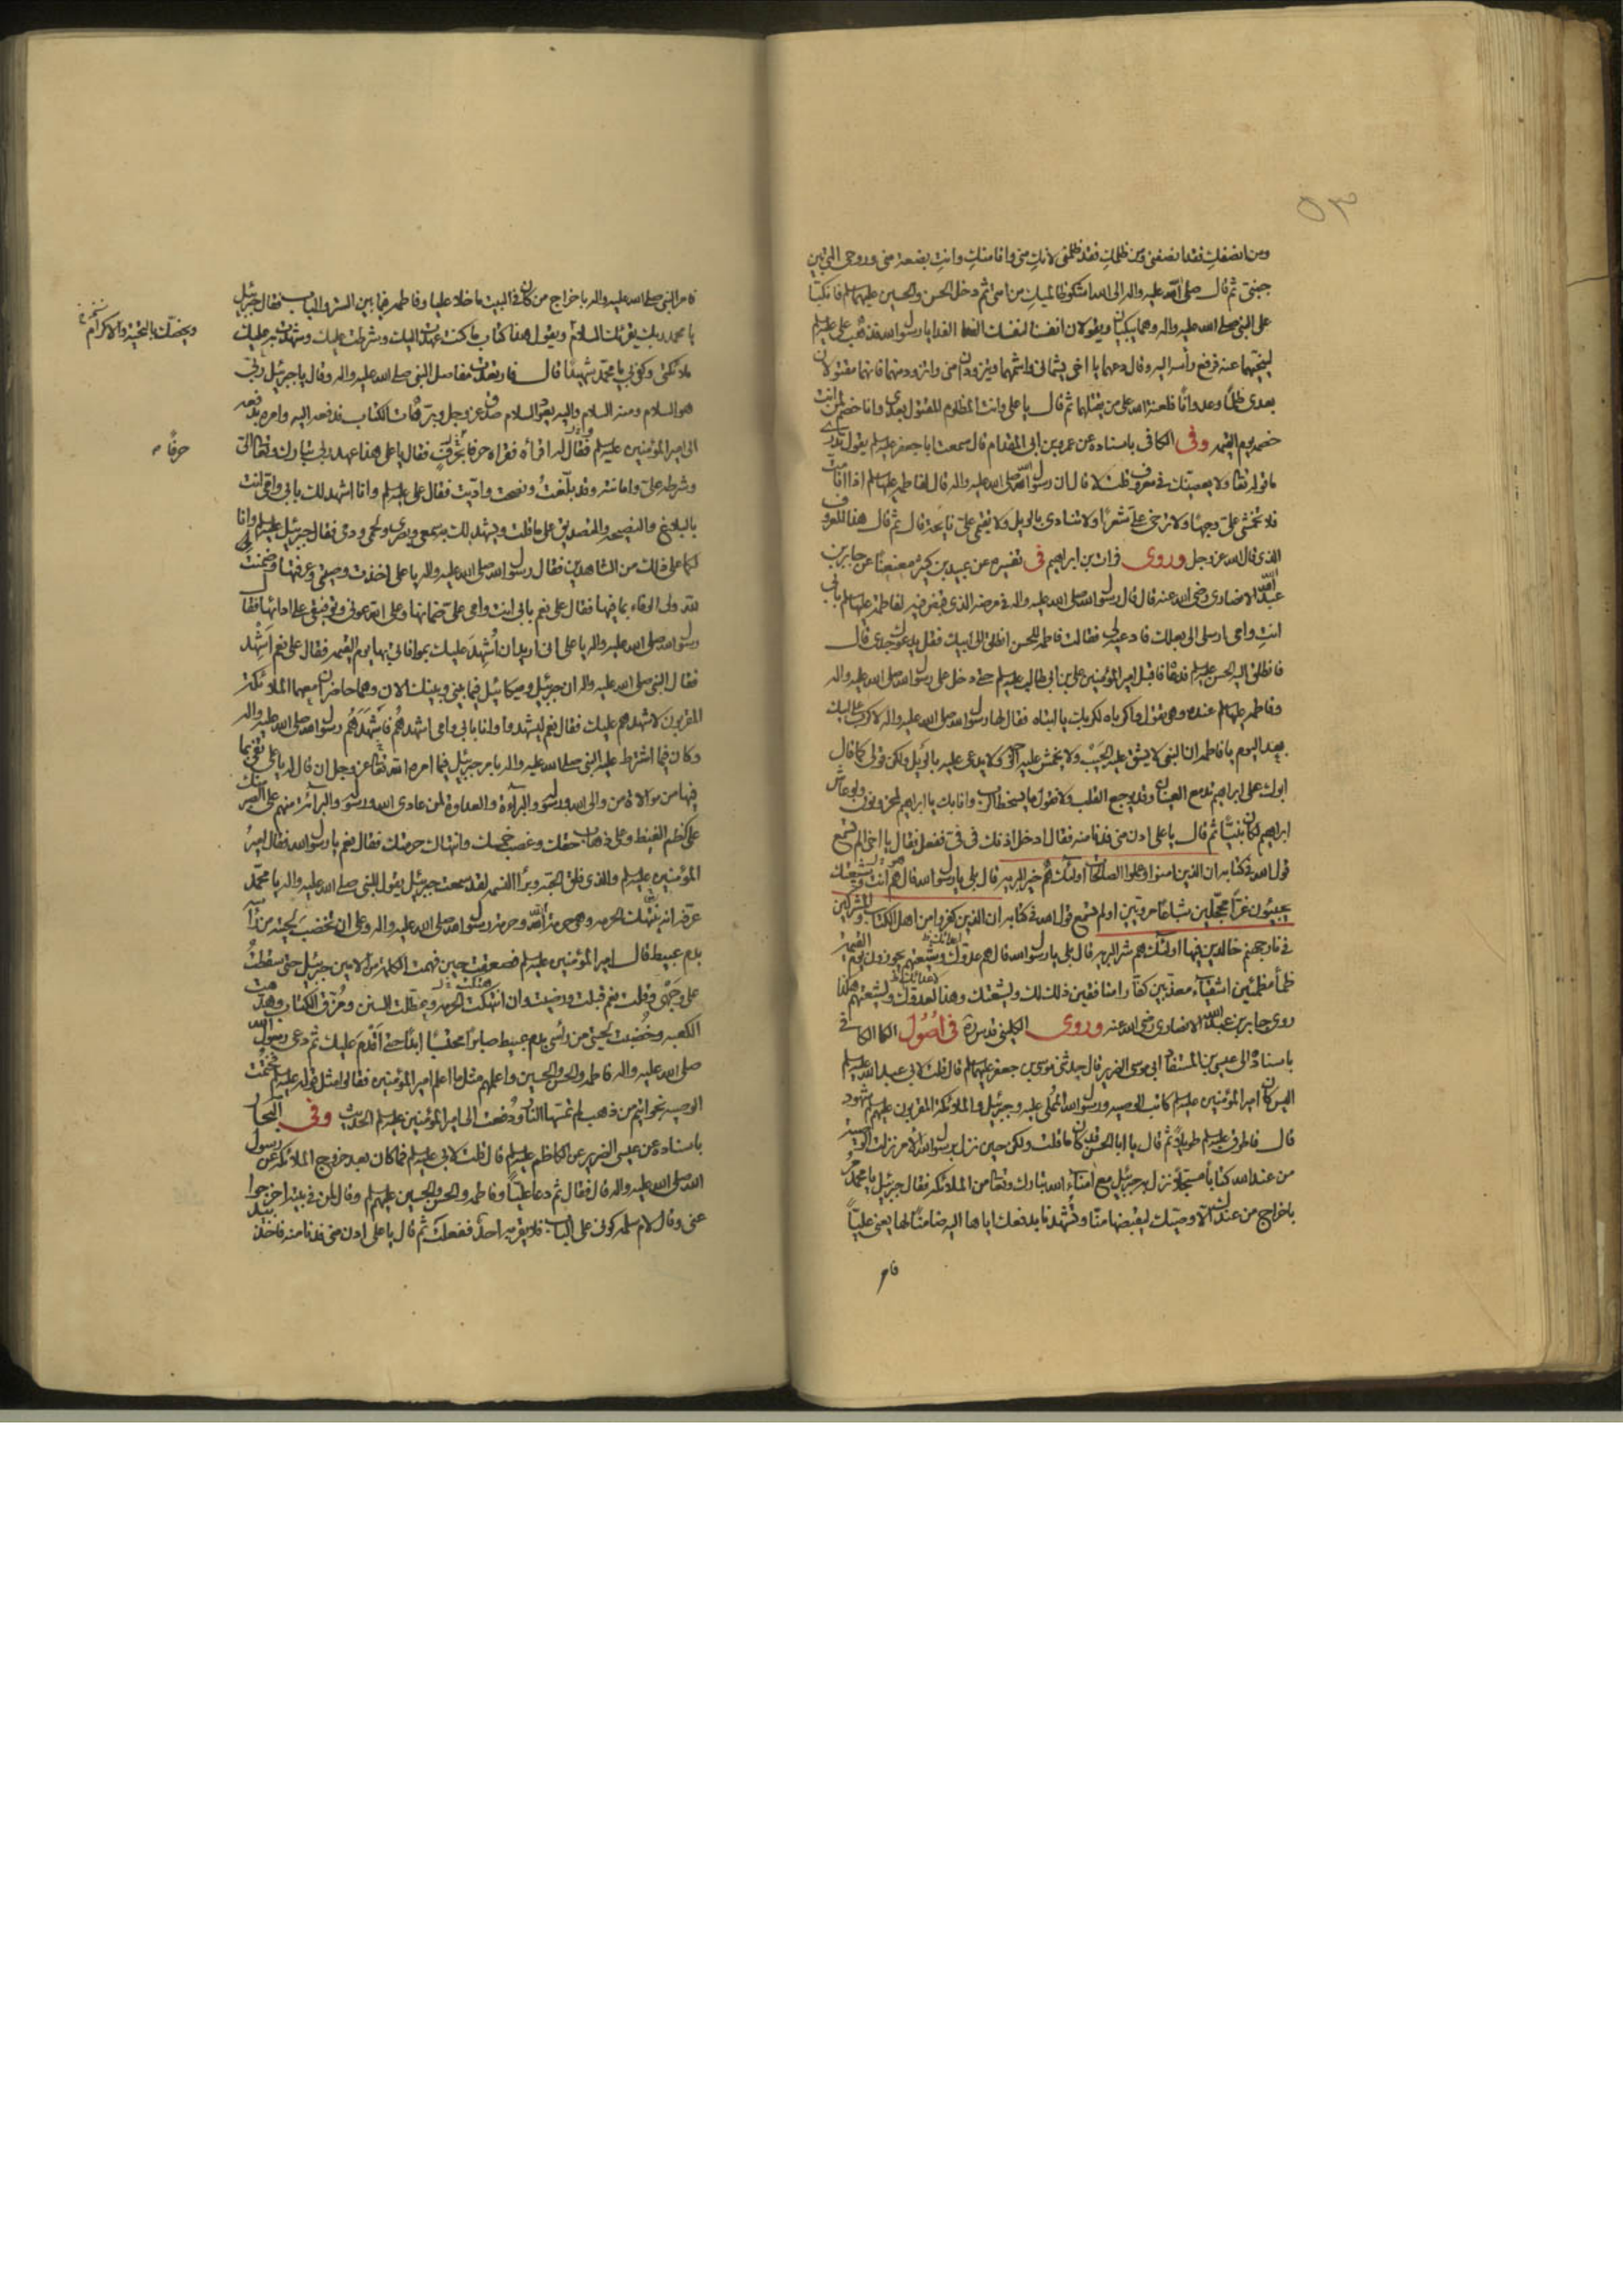 ٥٣
ومن انصفك فقد انصفنى ومن ظلمك فقد ظلمنى لانك منى وانا منك وانت بضعة منى وروحى التى بين
جنبى ثم قال صلى الله عليه واله الى الله اشكو ظالميك من امتى ثم دخل الحسن والحسين عليهما السلم فانكبا
على النبى صلى الله عليه واله وهما يبكيان ويقولان انفسنا لنفسك الفدا يا رسول الله فذهب على عليه السلم
لينحيهما عنه فرفع رأسه اليه وقال دعهما يا اخى يشمانى واشمهما ويتزودان منى واتزود منهما فانهما مقتولان
بعدى ظلما وعدوانا فلعنة الله على من يقتلهما ثم قال يا على وانت المظلوم المقتول بعدى وانا خصم لمن انت
خصمه يوم القيمه وفى الكافى باسناده عن عمرو بن ابى المقدام قال سمعت ابا جعفر عليه السلم يقول تدرى
ما قوله تعالى ولا يعصينك فى معروف قلت لا قال ان رسول الله صلى الله عليه واله قال لفاطمه عليها السلم اذا انا مت
فلا تخمشى على وجها ولا ترخى على شعرا ولا تنادى بالويل ولا تقيمى على نايحة قال ثم قال هذا المعروف
الذى قال الله عز وجل وروى فرات بن ابراهيم فى تفسيره عن عبيد بن كثير معنعنا عن جابر بن
عبد الله الانصارى رضى الله عنه قال قال رسول الله صلى الله عليه واله فى مرضه الذى قبض فيه لفاطمة عليها السلم بابى
انت وامى ارسلى الى بعلك فادعيه لى فقالت فاطمه للحسن انطلق الى ابيك فقل يدعوك جدى قال
فانطلق اليه الحسن عليه السلم فدعاه فاقبل امير المؤمنين على بن ابى طالب عليه السلم حتى دخل على رسول الله صلى الله عليه واله
وفاطمه عليها السلم عنده وهى تقول واكرباه لكربك يا ابتاه فقال لها رسول الله صلى الله عليه واله لا كرب على ابيك
بعد اليوم يا فاطمه ان النبى لا يشق عليه الجيب ولا يخمش عليه الوجه ولا يدعى عليه بالويل ولكن قولى كما قال
ابوك على ابراهيم تدمع العينان وقد يوجع القلب ولا نقول ما يسخط الرب وانا بك يا ابراهيم لمحزونون ولو عاش
ابراهيم لكان نبيا ثم قال يا على ادن منى فدنا منه فقال ادخل اذنك فى فى ففعل فقال يا اخى الم تسمع
قول الله فى كتابه ان الذين امنوا وعملوا الصالحات اولئك هم خير البريه قال بلى يا رسول الله قال هم انت وشيعتك
يجيئون غرا محجلين شباعا مرويين اولم تسمع قول الله فى كتابه ان الذين كفروا من اهل الكتاب والمشركين
فى نار جهنم خالدين فيها اولئك هم شر البريه قال بلى يا رسول الله قال هم عدوك وشيعتهم يجوزون يوم القيمة
ظمأ مظمئين اشقياء معذبين كفارا منافقين ذلك لك ولشيعتك وهذا لعدوك ولشيعتهم هكذا
روى جابر بن عبد الله الانصارى رضى الله عنه وروى الكلينى قدس سره فى اصول الكافى
باسناده الى عيسى بن المستفاد ابى موسى الضرير قال حدثنى موسى بن جعفر عليهما السلم قال قلت لابى عبد الله عليه السلم
اليس كان امير المؤمنين عليه السلم كاتب الوصيه ورسول الله المملى عليه وجبرئيل والملائكة المقربون عليهم السلم شهود
قال فاطرق عليه السلم طويلا ثم قال يا ابا الحسن قد كان ما قلت ولكن حين نزل برسول الله الامر نزلت الوصية
من عند الله كتابا مسجلا نزل به جبرئيل مع امناء الله تبارك وتعالى من الملائكة فقال جبرئيل يا محمد مر
باخراج من عندك الا وصيك ليقبضها منا وتشهدنا بدفعك اياها اليه ضامنا لها يعنى عليا
فامر
فامر النبى صلى الله عليه واله باخراج من كان فى البيت ما خلا عليا وفاطمه فيما بين الستر والباب فقال جبرئيل
يا محمد ربك يقرئك السلام ويقول هذا كتاب ما كنت عهدت اليك وشرطت عليك وشهدت به عليك
ويخصك بالتحية والاكرام
ملائكتى وكفى بى يا محمد شهيدا قال فارتعدت مفاصل النبى صلى الله عليه واله وقال يا جبرئيل ربى
هو السلام ومنه السلام واليه يعود السلام صدق عز وجل وبر هات الكتاب فدفعه اليه وامره بدفعه
الى امير المؤمنين عليه السلم فقال له اقرأه فقرأه حرفا حرفا فقال يا على هذا عهد ربى تبارك وتعالى الى
حرفا
وشرطه على وامانته وقد بلغت ونصحت واديت فقال على عليه السلم وانا اشهد لك بابى وامى انت
بالبلاغ والنصيحه والتصديق على ما قلت ويشهد لك به سمعى وبصرى ولحمى ودمى فقال جبرئيل عليه السلم وانا
لكما على ذلك من الشاهدين فقال رسول الله صلى الله عليه واله يا على اخذت وصيتى وعرفتها وضمنت
لله ولى الوفاء بما فيها فقال على نعم بابى انت وامى على ضمانها وعلى الله عونى وتوفيقى على ادائها فقال
رسول الله صلى الله عليه واله يا على انى اريد ان اشهد عليك بموافاتى بها يوم القيمه فقال على نعم اشهد
فقال النبى صلى الله عليه واله ان جبرئيل وميكائيل فيما بينى وبينك الان وهما حاضران معهما الملائكة
المقربون لاشهدهم عليك فقال نعم ليشهدوا وانا بابى وامى اشهدهم فاشهدهم رسول الله صلى الله عليه واله
وكان فيما اشترط عليه النبى صلى الله عليه واله بامر جبرئيل فيما امره الله تعالى عز وجل ان قال له يا على تفى بما
فيها من موالاة من والى الله ورسوله والبراءة والعداوة لمن عادى الله ورسوله والبرائة منهم على الصبر منك
على كظم الغيظ وعلى ذهاب حقك وغصب خمسك وانتهاك حرمتك فقال نعم يا رسول الله فقال امير
المؤمنين عليه السلم والذى فلق الحبة وبرأ النسمه لقد سمعت جبرئيل يقول للنبى صلى الله عليه واله يا محمد
عرفه انه ينتهك الحرمه وهى حرمة الله وحرمة رسول الله صلى الله عليه واله وعلى ان تخضب لحيته من رأسه
بدم عبيط قال امير المؤمنين عليه السلم فصعقت حين فهمت الكلمة من الامين جبرئيل حتى سقطت
على وجهى وقلت نعم قبلت ورضيت وان انتهكت الحرمه وعطلت السنن ومزق الكتاب وهدمت
الكعبه وخضبت لحيتى من رأسى بدم عبيط صابرا محتسبا ابدا حتى اقدم عليك ثم دعى رسول الله
صلى الله عليه واله فاطمه والحسن والحسين واعلمهم مثل ما اعلم امير المؤمنين فقالوا مثل قوله عليه السلم فختمت
الوصيه بخواتيم من ذهب لم تمسها النار ودفعت الى امير المؤمنين عليه السلم الحديث وفى البحار
باسناده عن عيسى الضرير عن الكاظم عليه السلم قال قلت لابى عليه السلم فما كان بعد خروج الملائكه عن رسول
الله صلى الله عليه واله قال فقال ثم دعا عليا وفاطمه والحسن والحسين عليهم السلم وقال لمن فى بيته اخرجوا
عنى وقال لام سلمه كونى على الباب فلا يقربه احد ففعلت ثم قال يا على ادن منى فدنا منه فاخذ بيد